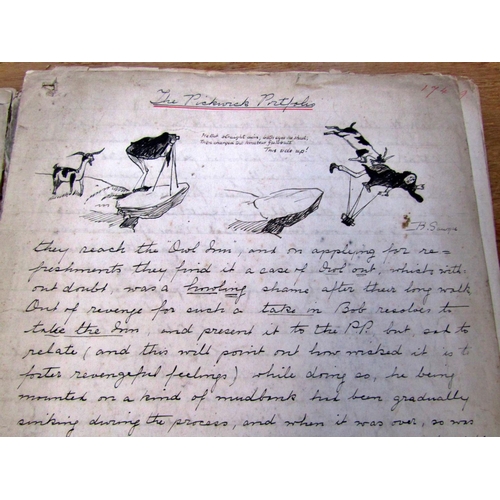 The Pickwick Portfolio
176
He that straight aim, with eyes he shut;
Then charged his amateur football
This side up!
B. Snipe
they reach the Owl Inn, and on applying for re=
freshments they find it a case of Owl out, which with-
out doubt, was a howling shame after their long walk
Out of revenge for such a take in Bob resolves to
take the Inn, and present it to the P.P. but sad to
relate (and this will point out how wicked it is to
foster revengeful feelings) while doing so, he being
mounted on a kind of mudbank has been gradually
sinking during the process, and when it was over, so was